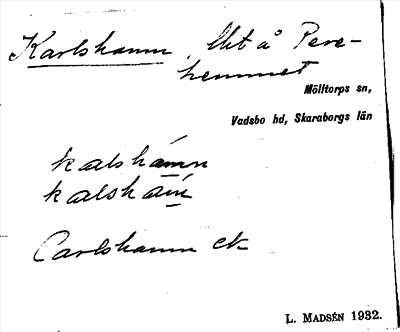 Karlshamn, lht å Pere-
hemmet
Mölltorps sn,
Vadsbo hd, Skaraborgs län
kalshámn
kalshám
Carlshamn ek
L. MADSÉN 1932.